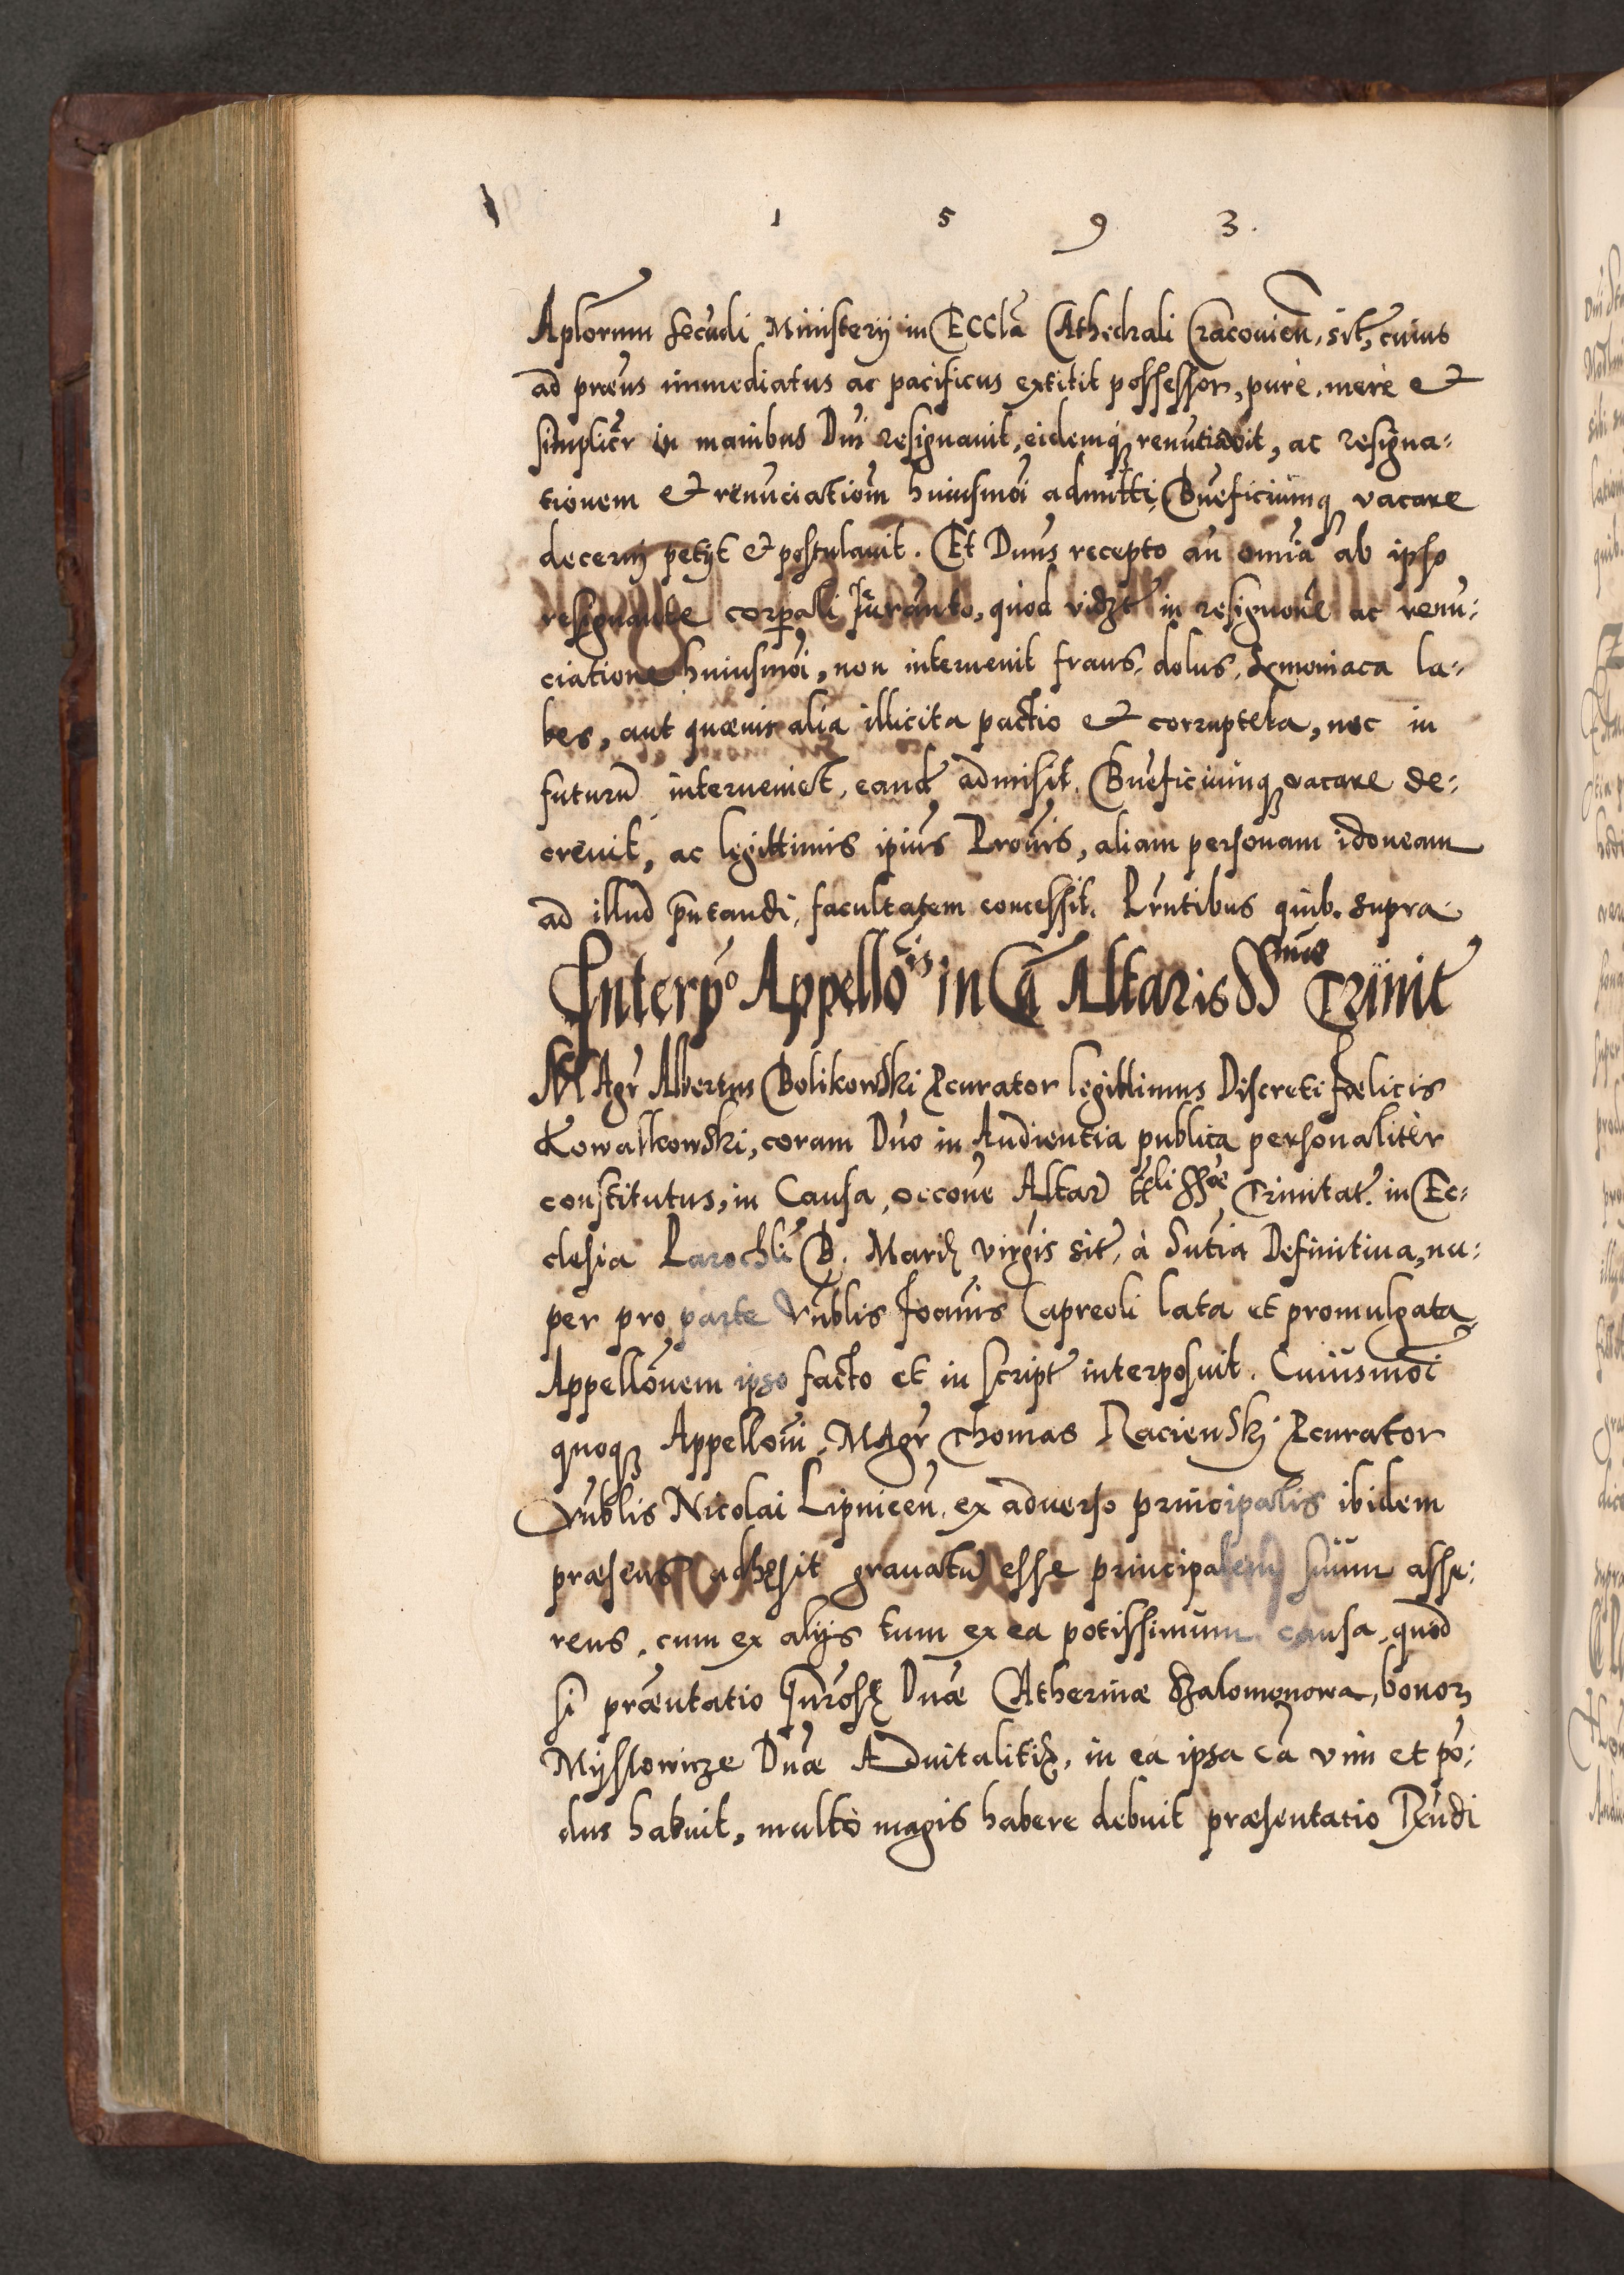 1 5 9 3.
Aplorum secudi Ministerij in Eccla Cathedrali Cracovien, sit, cuius
ad præns immediatus ac pacificus extitit possessor, purè, merè et
simplicr in manibus Dni resignauit, eidemq renutiauit, ac resigna=
tionem et renuciationem huiusmoi admitti, Bneficiumq vacare
decerni petijt et postulauit. Et Dnus recepto an omia ab ipso
resignante corpali Juranto, quod vidzt in resignone ac renu=
ciatione huiusmoi, non interuenit fraus, dolus, symoniaca la=
bes, aut quævis alia illicita pactio et corruptela, nec in
futurū interueniet, eand admisit, Bneficiumq vacare de=
creuit, ac legittimis ipius Prouis, aliam personam idoneam
ad illud pntandi, facultatem concessit. Prntibus quib. supra.
Interpo Appellois in Ca Altaris SSmæ Trinit
MAgr Albertus Bolikowski Pcurator legittimus Discreti Fœlicis
Kowalkowski, coram Dno in Audientia publica personalitèr
constitutus, in Causa, occone Altar ttli SSæ Trinitat. in Ec=
clesia Parochli B. Mariæ virgis sit, à Sntia Definitiua, nu=
per pro parte Vnblis Joannis Capreoli lata et promulgata,
Appellonem ipso facto et in script interposuit. Cuiusmoi
quoq Appelloni, MAgr Thomas Racienskj Pcurator
Vnblis Nicolai Lipnicen, ex aduerso principalis ibidem
præsens adhęsit grauatū esse principalem suum asse=
rens, cum ex alijs tum ex ea potissimum causa, quod
si præntatio Gnrosę Dnæ Catherinæ Szalomonowa, bonor
Myslowicze Dnæ Aduitalitię, in ea ipsa ca vim et po=
dus habuit, multò magis habere debuit præsentatio Rndi